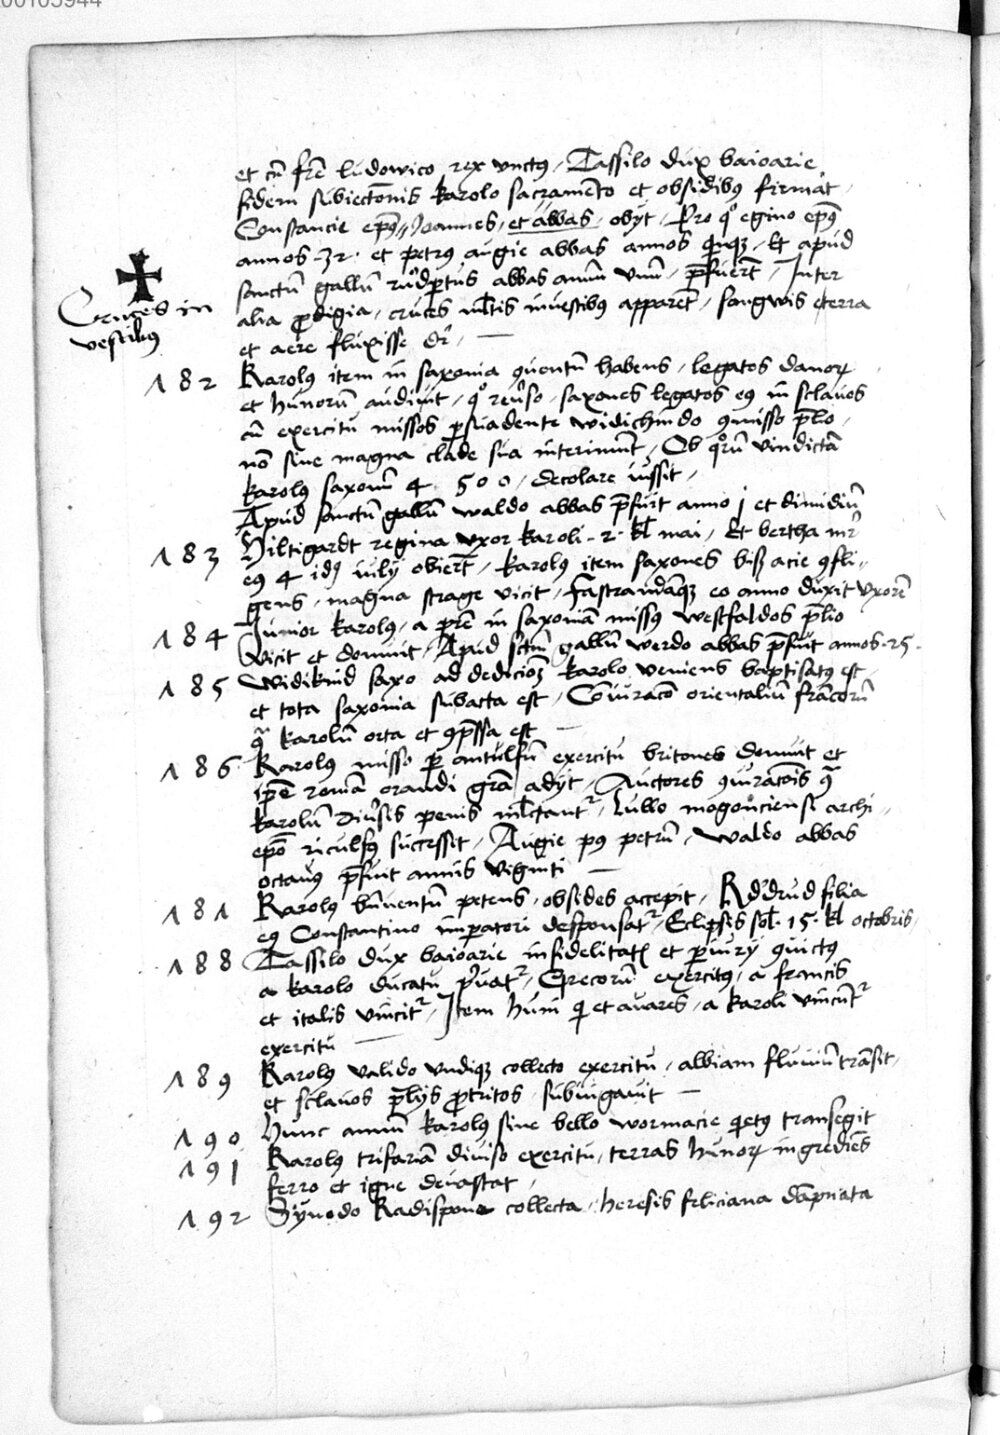 00105944
et cū frē ludowico rex vnctꝰ, Tassilo dux baioarie
fidem subiectōnis karolo sacramēto et obsidibꝰ firmat,
Constancie epūs, Joannes, et abbas, obyt, Pro qͦ egino epūs
annos 32. et petrus augie abbas annos qinqꝫ, Et apud
sanctū gallū rudꝑtus abbas annū vnū, p̄fuerūt, Inter
alia ꝓdigia, cruces ml̄tis in vestibus apparēt, sangwis e terra
et aere fluxisse dr̄, —
Cruces in
vestibꝰ
182 Karolꝰ item in saxonia ꝯuentū habens, legatos danoꝝ
et hunorū audiuit, qͦ reūso, saxones legatos eꝰ in sclauos
cū exercitu missos ꝑsuadente widichindo ꝯmisso p̄lio,
nō sine magna clade sua interimūt, Ob qͦrū vindictā
karolꝰ saxonū 4 500, decolare iussit,
Apud sanctū gallū waldo abbas p̄fuit anno j et dimidiū
183 Hiltigardt regina vxor karoli . 2 . kl̄ mai, Et bertha mr̄
eꝰ 4 idꝰ iuly obierūt, karolꝰ item saxones bis acie ꝯfli,,
gens, magna strage vicit, Fastrandāqꝫ eo anno duxit vxorē
184 Junior karolꝰ, a pr̄e in saxoniā missꝰ westfaldos p̄lio
vicit et domuit, Apud sctm̄ gallū werdo abbas p̄fuit annos .25.
185 Widikind saxo ad dedicioꝫ karolo veniens baptisatꝰ est,
et tota saxonia subacta est, Coniuracō orientaliū francorū
ꝯͣ karolū orta et ꝯp̄ssa est —
186 Karolꝰ misso ꝑ antulfū exercitu britones domuit et
ip̄e romā orandi grā adyt, Auctores ꝯiuracōis ꝯͣ
karolū diuͥsis penis ml̄tantᷣ, Lullo mogonciensi archi,,
epō riculfꝰ successit, Augie pꝰ petrū, waldo abbas
octauꝰ p̄fuit annis viginti —
181 Karolꝰ bn̄uentū petens, obsides accepit, Rͦdrud filia
eꝰ Constantino imꝑatori desponsatᷣ, Eclipsis sol̄ . 15 . kl̄ octobris,
188 Tassilo dux baioarie infidelitatꝭ et ꝑiury ꝯuictꝰ
a karolo ducatu pͥuatᷣ, Grecorū exercitꝰ, a francis
et italis vincitᷣ, Item huni qͥ et auares, a karoli vincūtᷣ
exercitu —
189 Karolꝰ valido vndiqꝫ collecto exercitu, albiam fluuiū trāsit,
et sclauos p̄lys ꝓtritos subiugauit —
190 Hunc annū karolꝰ sine bello wormacie qͥetꝰ transegit
191 Karolꝰ trifariā diuiso exercitu, terras hunoꝝ ingrediēs
ferro et igne deuastat,
192 Synodo Radispone collecta, heresis feliciana dāpnata